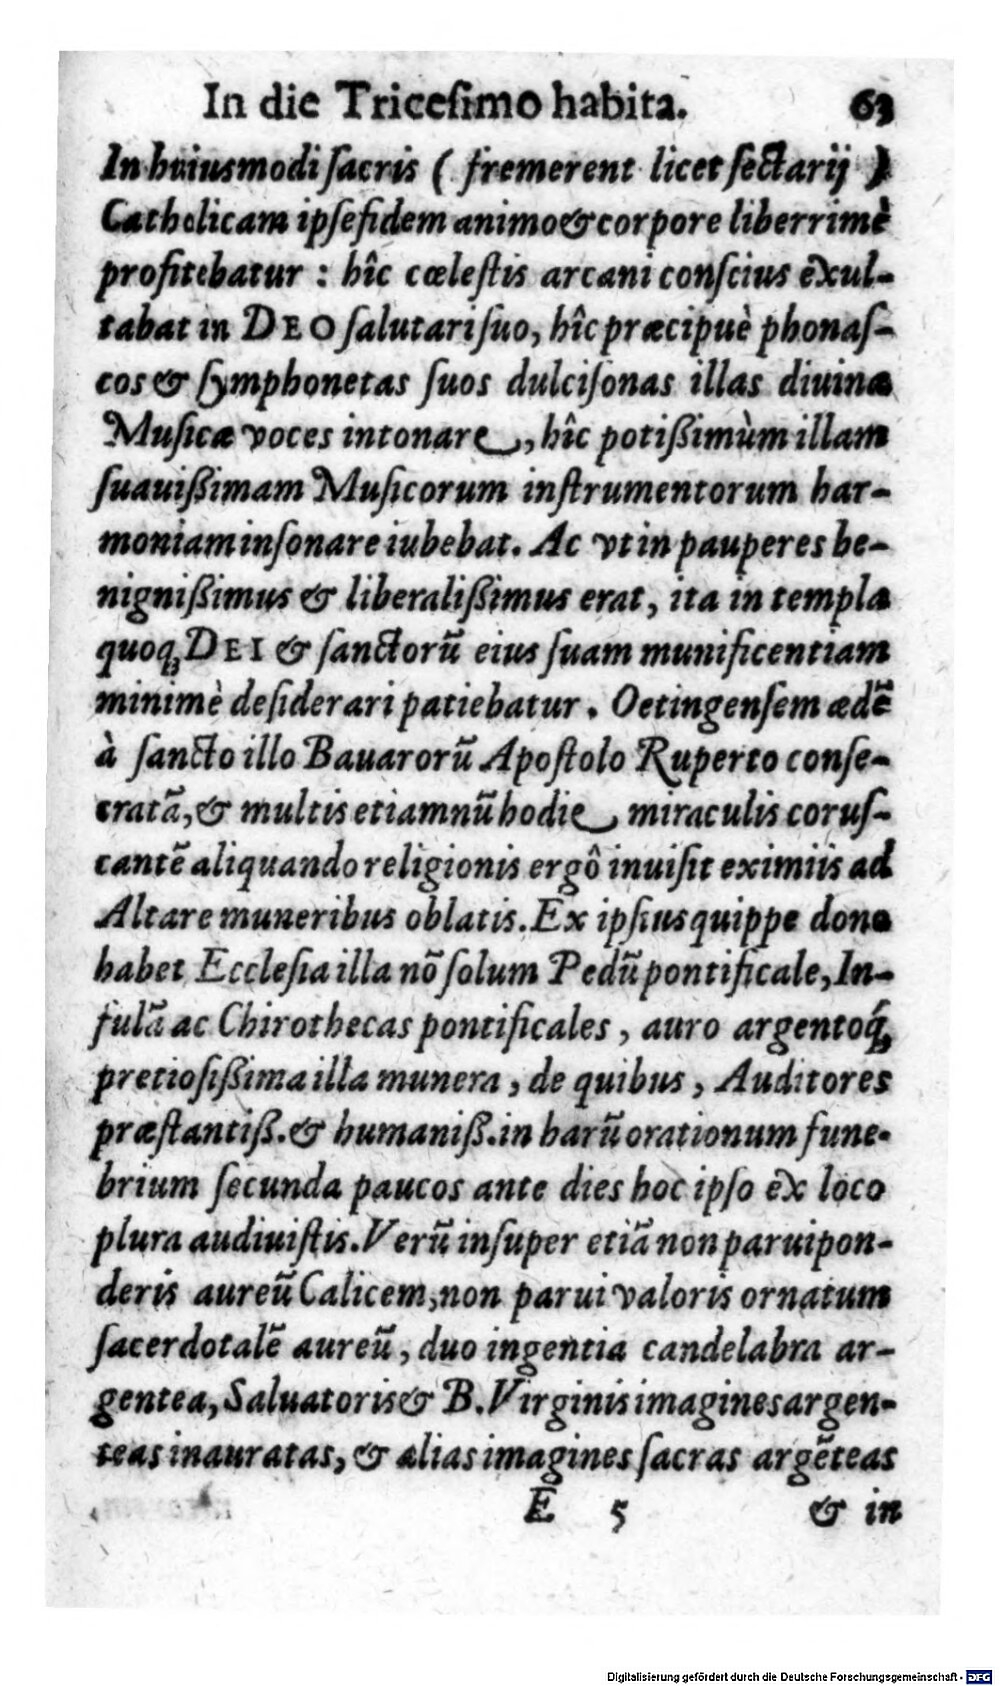 In die Triceſimo habita. 63
In huiusmodi ſacris ( fremerent licet ſectarij )
Catholicam ipſe fidem animo & corpore liberrimè
profitebatur : hîc cœleſtis arcani conſcius exul-
tabat in DEO ſalutari ſuo, hîc præcipuè phonaſ-
cos & ſymphonetas ſuos dulciſonas illas diuinæ
Muſicæ voces intonare, hîc potiſſimùm illam
ſuauiſſimam Muſicorum inſtrumentorum har-
moniam inſonare iubebat. Ac vt in pauperes be-
nigniſſimus & liberaliſſimus erat, ita in templa
quoq; DEI & ſanctorũ eius ſuam munificentiam
minimè deſiderari patiebatur. Oetingenſem ædẽ
à ſancto illo Bauarorũ Apoſtolo Ruperto conſe-
cratã, & multis etiamnũ hodie miraculis coruſ-
cantẽ aliquando religionis ergô inuiſit eximiis ad
Altare muneribus oblatis. Ex ipſius quippe dono
habet Eccleſia illa nõ ſolum Pedũ pontificale, In-
fulã ac Chirothecas pontificales, auro argentoq́;
pretioſiſſima illa munera, de quibus, Auditores
præſtantiſſ. & humaniſſ. in harũ orationum fune-
brium ſecunda paucos ante dies hoc ipſo ex loco
plura audiuiſtis. Verũ inſuper etiã non parui pon-
deris aureũ Calicem, non parui valoris ornatum
ſacerdotalẽ aureũ, duo ingentia candelabra ar-
gentea, Saluatoris & B. Virginis imagines argen-
teas inauratas, & alias imagines ſacras argẽteas
E 5 & in
Digitalisierung gefördert durch die Deutsche Forschungsgemeinschaft - DFG